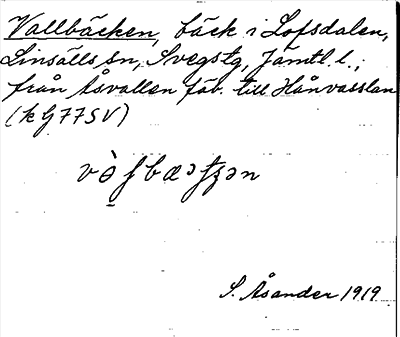 Vallbäcken, bäck i Lofsdalen,
Linsälls sn, Svegs tg, Jämtl. l.;
från Åsvallen fäv. till Hånvasslan
(k G 77 SV)
S. Åsander 1919